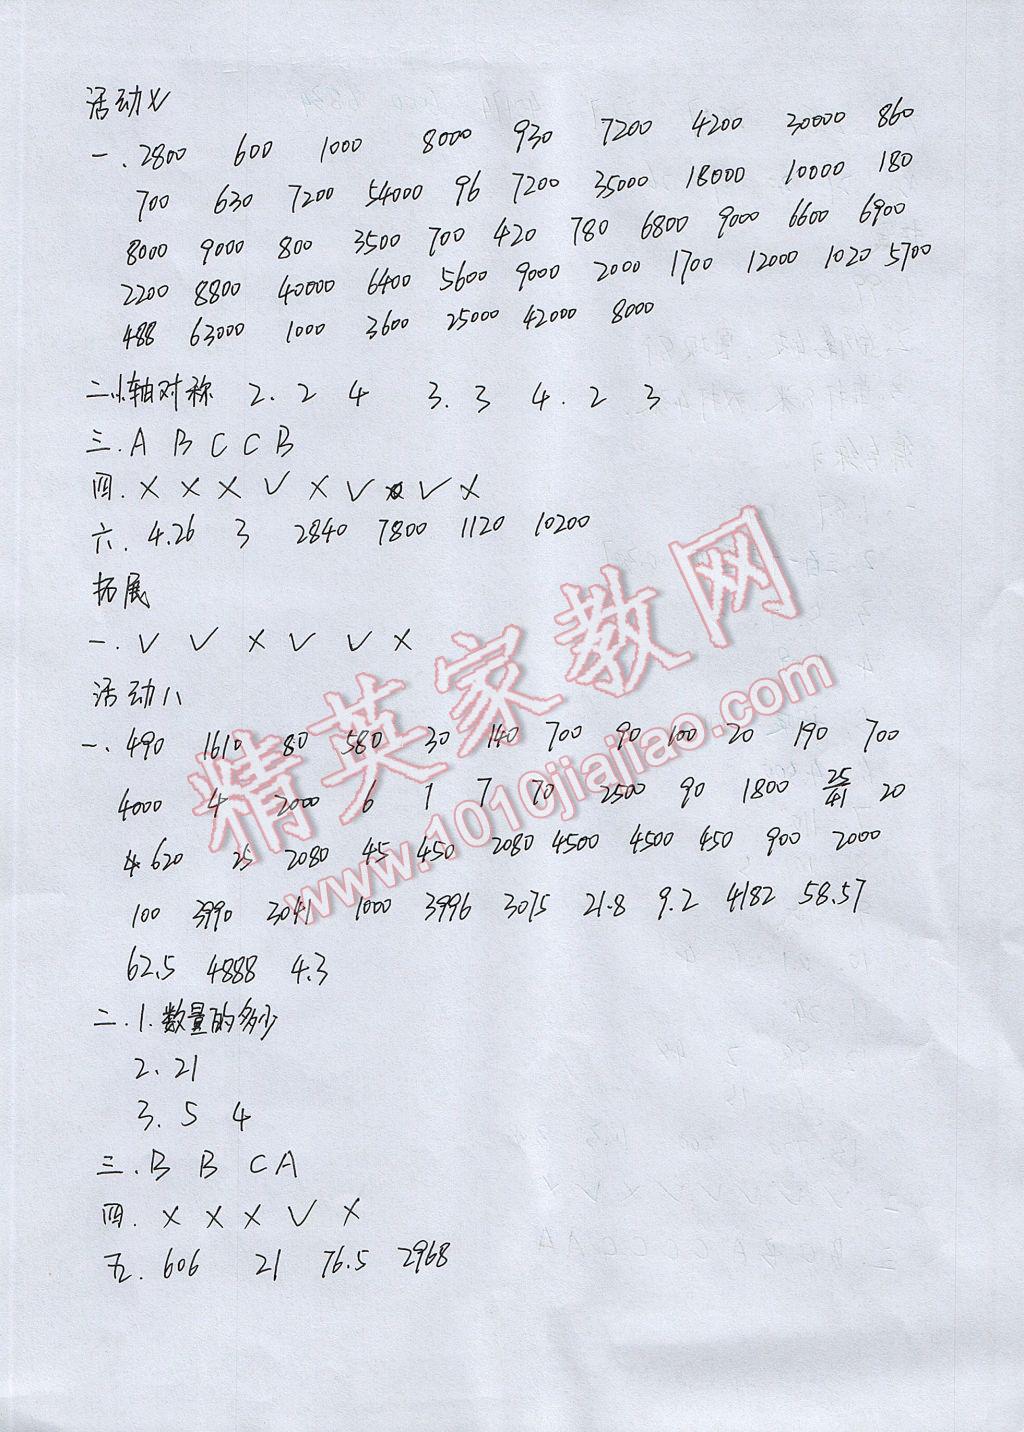 活动七
一. 2800 600 1000 8000 930 7200 4200 30000 860
700 630 7200 54000 96 7200 35000 18000 10000 180
8000 9000 800 3500 700 420 780 6800 9000 6600 6900
2200 8800 40000 6400 5600 9000 2000 1700 12000 1020 5700
488 63000 1000 3600 25000 42000 8000
二.1.轴对称 2. 2 4 3. 3 4. 2 3
三. A B C C B
四. × × × √ × √ × √ ×
六. 4.26 3 2840 7800 1120 10200
拓展
一. √ √ × √ √ ×
活动八
一. 490 1610 80 580 30 140 700 90 100 20 190 700
4000 4 2000 6 1 7 70 2500 90 1800 25/41 20
620 25 2080 45 450 2080 4500 4500 450 900 2000
100 3990 3041 1000 3996 3075 21.8 9.2 4182 58.57
62.5 4888 4.3
二. 1. 数量的多少
2. 21
3. 5 4
三. B B C A
四. × × × √ ×
五. 606 21 76.5 2968
精英家教网
www.1010jiajiao.com